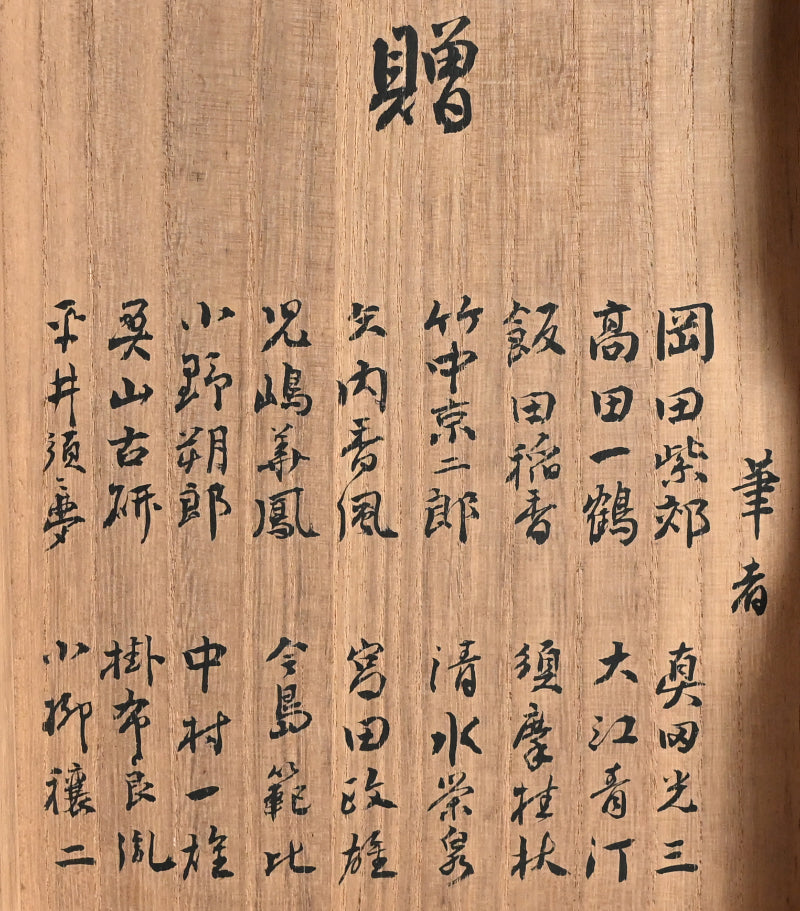 贈
筆者
岡田紫郊
高田一鶴
飯田稲香
竹中京二郎
矢内香風
児嶋華鳳
小野朔郎
奥山古研
平井須夢
真田光三
大江青汀
須摩桂杖
清水榮泉
富田政雄
今島範比
中村一雄
掛布良胤
小柳穣二